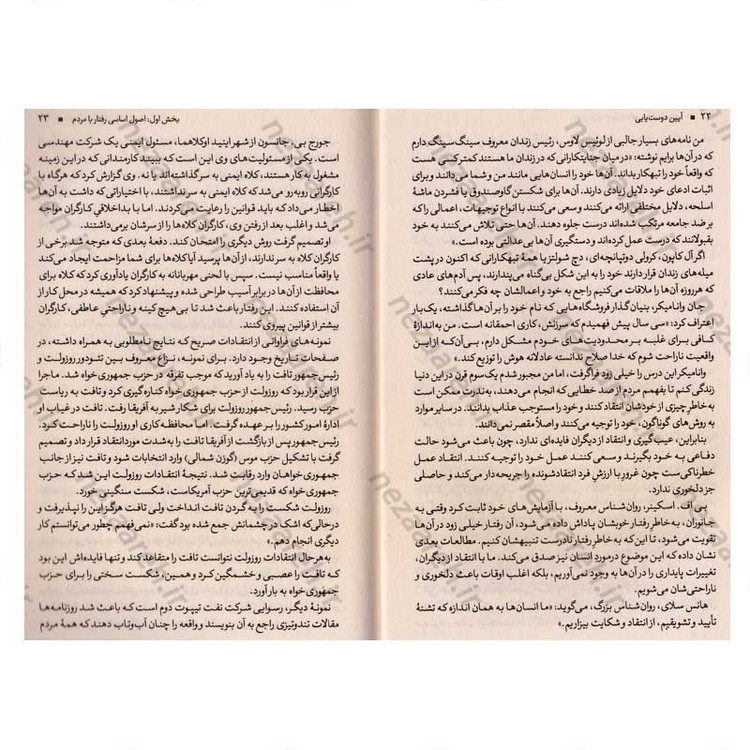 ۲۲ ■ آیین دوست‌یابی
من نامه‌های بسیار جالبی از لوئیس لاوس، رئیس زندان معروف سینگ سینگ دارم
که در آن‌ها برایم نوشته: «در میان جنایتکارانی که در زندان ما هستند کمتر کسی هست
که واقعاً خود را تبهکار بداند. آن‌ها خود را انسان‌هایی مانند من و شما می‌دانند و برای
اثبات ادعای خود دلایل زیادی دارند. آن‌ها برای شکستن گاوصندوق یا فشردن ماشهٔ
اسلحه، دلایل مختلفی ارائه می‌کنند و سعی می‌کنند با انواع توجیهات، اعمالی را که
بر ضد جامعه مرتکب شده‌اند جلوه دهند. آن‌ها حتی تلاش می‌کنند به خود
بقبولانند که درست عمل کرده‌اند و دستگیری آن‌ها بی‌عدالتی بوده است.»
اگر آل کاپون، کرولی دوتپانچه‌ای، دچ شولتز یا همهٔ تبهکارانی که اکنون در پشت
میله‌های زندان قرار دارند خود را به این شکل بی‌گناه می‌پندارند، پس آدم‌های عادی
که هر روزه آن‌ها را ملاقات می‌کنیم راجع به خود و اعمالشان چه فکر می‌کنند؟
جان وانامیکر، بنیان‌گذار فروشگاه‌هایی که نام خود را بر آن‌ها گذاشته، یک‌بار
اعتراف کرد: «سی سال پیش فهمیدم که سرزنش، کاری احمقانه است. من به‌اندازهٔ
کافی برای غلبه بر محدودیت‌های خودم مشکل دارم، بی‌آن‌که از این
واقعیت ناراحت شوم که خدا صلاح ندانسته عادلانه هوش را توزیع کند.»
وانامیکر این درس را خیلی زود فرا گرفت، اما من مجبور شدم یک سوم قرن در این دنیا
زندگی کنم تا بفهمم مردم از صد خطایی که انجام می‌دهند، به‌ندرت ممکن است
به خاطر چیزی از خودشان انتقاد کنند و خود را مستوجب عذاب بدانند. در سایر موارد
به روش‌های گوناگون، خود را توجیه می‌کنند و اصلاً مقصر نمی‌دانند.
بنابراین، عیب‌گیری و انتقاد از دیگران فایده‌ای ندارد، چون باعث می‌شود حالت
دفاعی به خود بگیرند و سعی کنند عمل خود را توجیه کنند. انتقاد عمل
خطرناکی‌ست چون غرور با ارزش فرد انتقادشونده را جریحه‌دار می‌کند و حاصلی
جز دلخوری ندارد.
بی. اف. اسکینر، روان‌شناس معروف، با آزمایش‌های خود ثابت کرد وقتی به
جانوران، به خاطر رفتار خوبشان پاداش داده می‌شود، آن رفتار خیلی زود در آن‌ها
تقویت می‌شود، تا این‌که به خاطر رفتار نادرست تنبیهشان کنیم. مطالعات بعدی
نشان داده که این موضوع در مورد انسان نیز صدق می‌کند. ما با انتقاد از دیگران،
تغییرات پایداری را در آن‌ها به وجود نمی‌آوریم، بلکه اغلب اوقات باعث دلخوری و
ناراحتی می‌شویم.
هانس سلای، روان‌شناس بزرگ، می‌گوید: «ما انسان‌ها به همان اندازه که تشنهٔ
تأیید و تشویقیم، از انتقاد و شکایت بیزاریم.»
بخش اول: اصول اساسی رفتار با مردم ■ ۲۳
جورج بی. جانسون از شهر اینید اوکلاهما، مسئول ایمنی یک شرکت مهندسی
است. یکی از مسئولیت‌های وی این است که ببیند کارمندانی که در این زمینه
مشغول به کار هستند، کلاه ایمنی به سر گذاشته‌اند یا نه. وی گزارش کرد که هرگاه با
کارگرانی روبه‌رو می‌شد که کلاه ایمنی به سر نداشتند، با اختیاراتی که داشت به آن‌ها
اخطار می‌داد که باید قوانین را رعایت می‌کردند. اما با بداخلاقی کارگران مواجه
می‌شد و اغلب بعد از رفتن وی، کارگران کلاه‌ها را از سرشان برمی‌داشتند.
او تصمیم گرفت روش دیگری را امتحان کند. دفعهٔ بعدی که متوجه شد برخی از
کارگران کلاه به سر ندارند، از آن‌ها پرسید آیا کلاه‌ها برای شما مزاحمت ایجاد می‌کند
یا واقعاً مناسب نیست. سپس با لحنی مهربانانه به کارگران یادآوری کرد که کلاه برای
محافظت از آن‌ها در برابر آسیب طراحی شده و پیشنهاد کرد که همیشه در محل کار از
آن استفاده کنند. این رفتار باعث شد تا بی‌هیچ کینه و ناراحتی عاطفی، کارگران
بیشتر از قوانین پیروی کنند.
نمونه‌های فراوانی از انتقادات صریح که نتایج نامطلوبی به همراه داشته، در
صفحات تاریخ وجود دارد. برای نمونه، نزاع معروف بین تئودور روزولت و
رئیس‌جمهور تافت را به یاد آورید که موجب تفرقه در حزب جمهوری‌خواه شد. ماجرا
از این قرار بود که روزولت از حزب جمهوری‌خواه کناره‌گیری کرد و تافت به ریاست
حزب رسید. رئیس‌جمهور روزولت برای شکار شیر به آفریقا رفت. تافت در غیاب او
ادارهٔ امور کشور را بر عهده گرفت. اما محافظه‌کاری او روزولت را ناراحت کرد.
رئیس‌جمهور پس از بازگشت از آفریقا تافت را به شدت مورد انتقاد قرار داد و تصمیم
گرفت با تشکیل حزب موس (گوزن شمالی) وارد انتخابات شود و تافت نیز از جانب
جمهوری‌خواهان وارد رقابت شد. نتیجهٔ انتقادات روزولت این شد که حزب
جمهوری‌خواه که قدیمی‌ترین حزب آمریکاست، شکست سنگینی خورد.
روزولت شکست را به گردن تافت انداخت ولی تافت هرگز این را نپذیرفت و
درحالی‌که اشک در چشمانش جمع شده بود گفت: «نمی‌فهمم چطور می‌توانستم کار
دیگری انجام دهم.»
به هر حال انتقادات روزولت نتوانست تافت را متقاعد کند و تنها فایده‌اش این بود
که تافت را عصبی و خشمگین کرد و همین، شکست سختی را برای حزب
جمهوری‌خواه به بار آورد.
نمونهٔ دیگر، رسوایی شرکت نفت تیپوت دوم است که باعث شد روزنامه‌ها
مقالات تندوتیزی راجع به آن بنویسند و واقعه را چنان آب‌وتاب دهند که همهٔ مردم